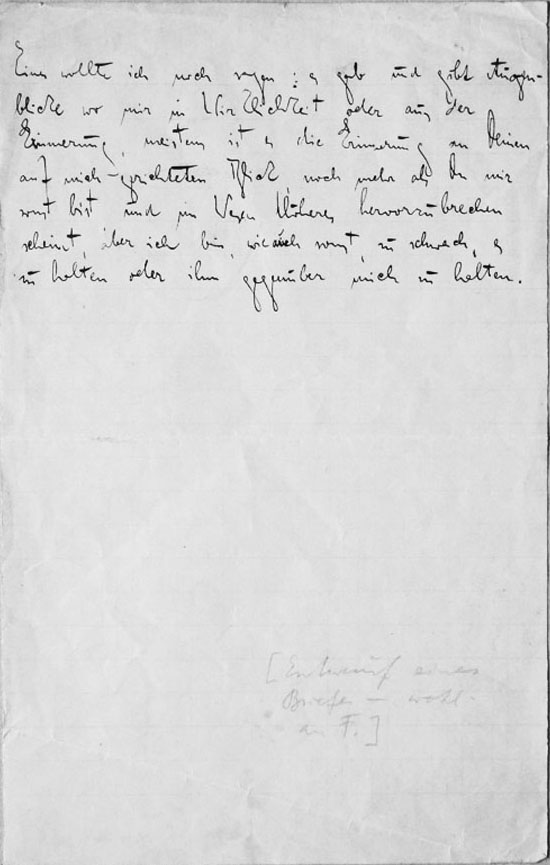 Eines wollte ich noch sagen: es gab und gibt Augen-
blicke wo mir in Wirklichkeit oder aus der
Erinnerung, meistens ist es die Erinnerung an Deinen
auf mich gerichteten Blick, noch mehr als Du mir
sonst bist und im Höheres hervorzubrechen
scheinst, aber ich bin, wie auch sonst, zu schwach, es
zu halten oder ihm gegenüber mich zu halten.
[Entwurf eines
Briefes – wohl
an F.]